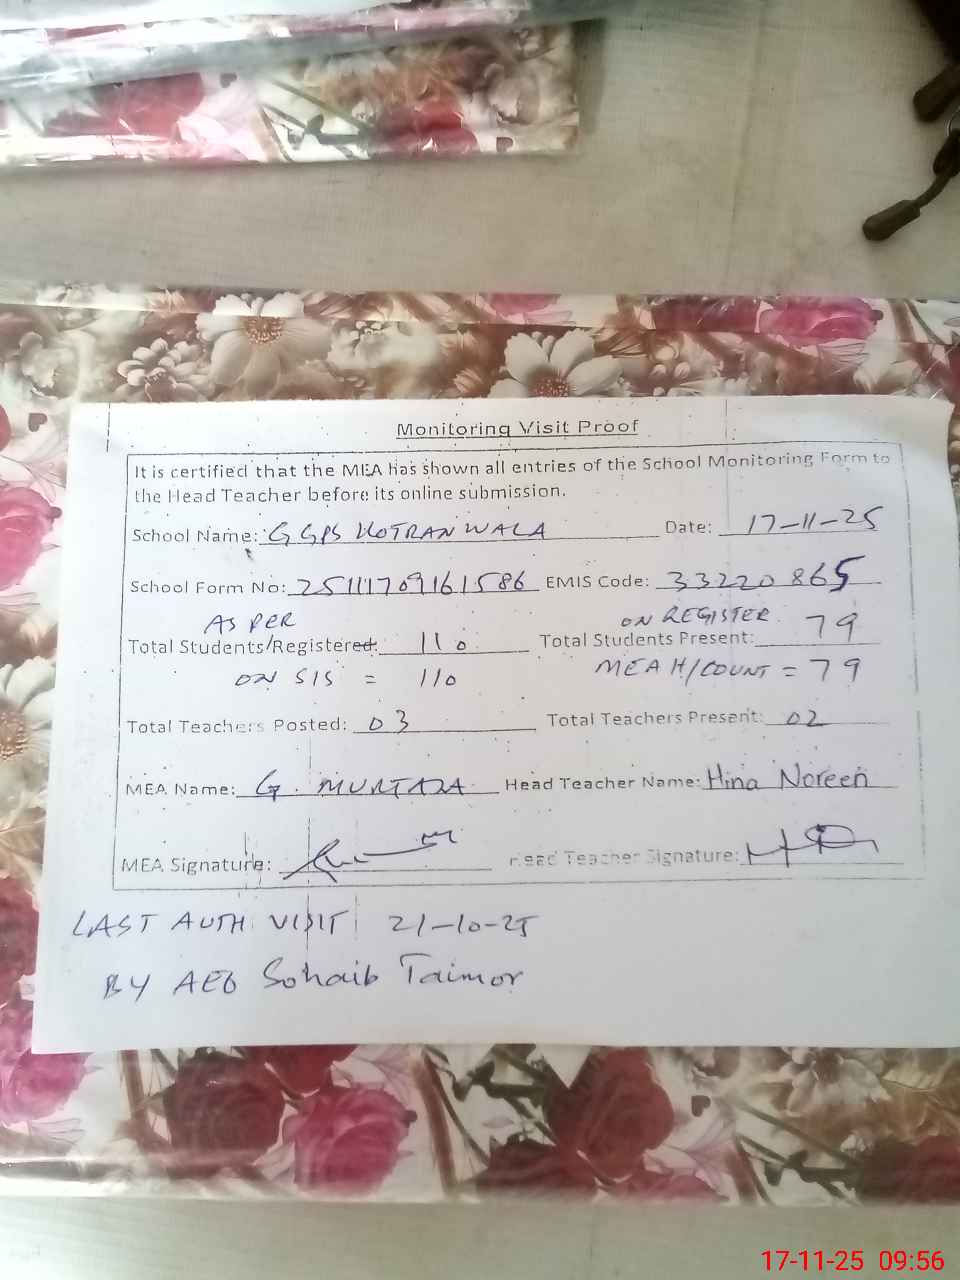 Monitoring Visit Proof
It is certified that the MEA has shown all entries of the School Monitoring Form to
the Head Teacher before its online submission.
School Name: GGPS KOTRANWALA Date: 17-11-25
School Form No: 25111709161586 EMIS Code: 33220865
AS PER ON REGISTER
Total Students/Registered: 110 Total Students Present: 79
ON SIS = 110 MEA H/COUNT = 79
Total Teachers Posted: 03 Total Teachers Present: 02
MEA Name: G. MURTAZA Head Teacher Name: Hina Noreen
MEA Signature: Head Teacher Signature:
LAST AUTH VISIT 21-10-25
BY AEO Sohaib Taimor
17-11-25 09:56